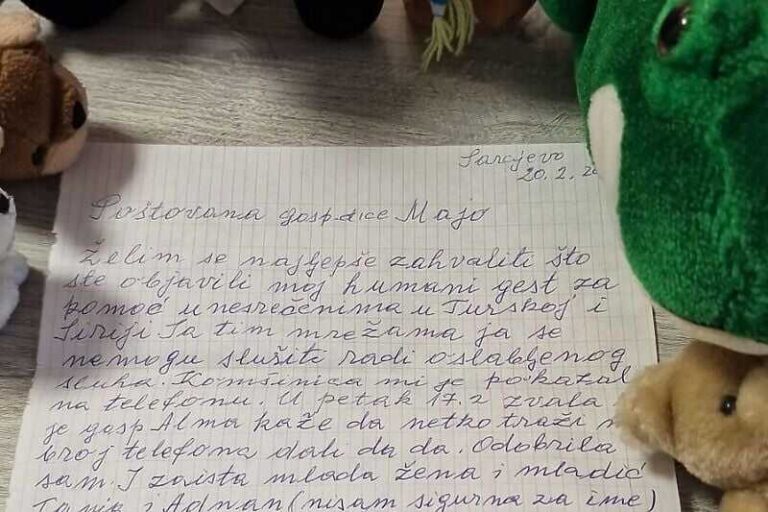 Sarajevo
20. 2. 20
Poštovana gospdice Majo
Želim se najljepše zahvaliti što
ste objavili moj humani gest za
pomoć unesrećenima u Turskoj i
Siriji Sa tim mrežama ja se
nemogu služiti radi oslabljenog
sluha. Komšinica mi je pokazal
na telefonu. U petak 17.2 zvala
je gosp Alma kaže da netko traži
broj telefona dali da da. Odobrila
sam. I zaista mlada žena i mladić
i Adnan (nisam sigurna za ime)